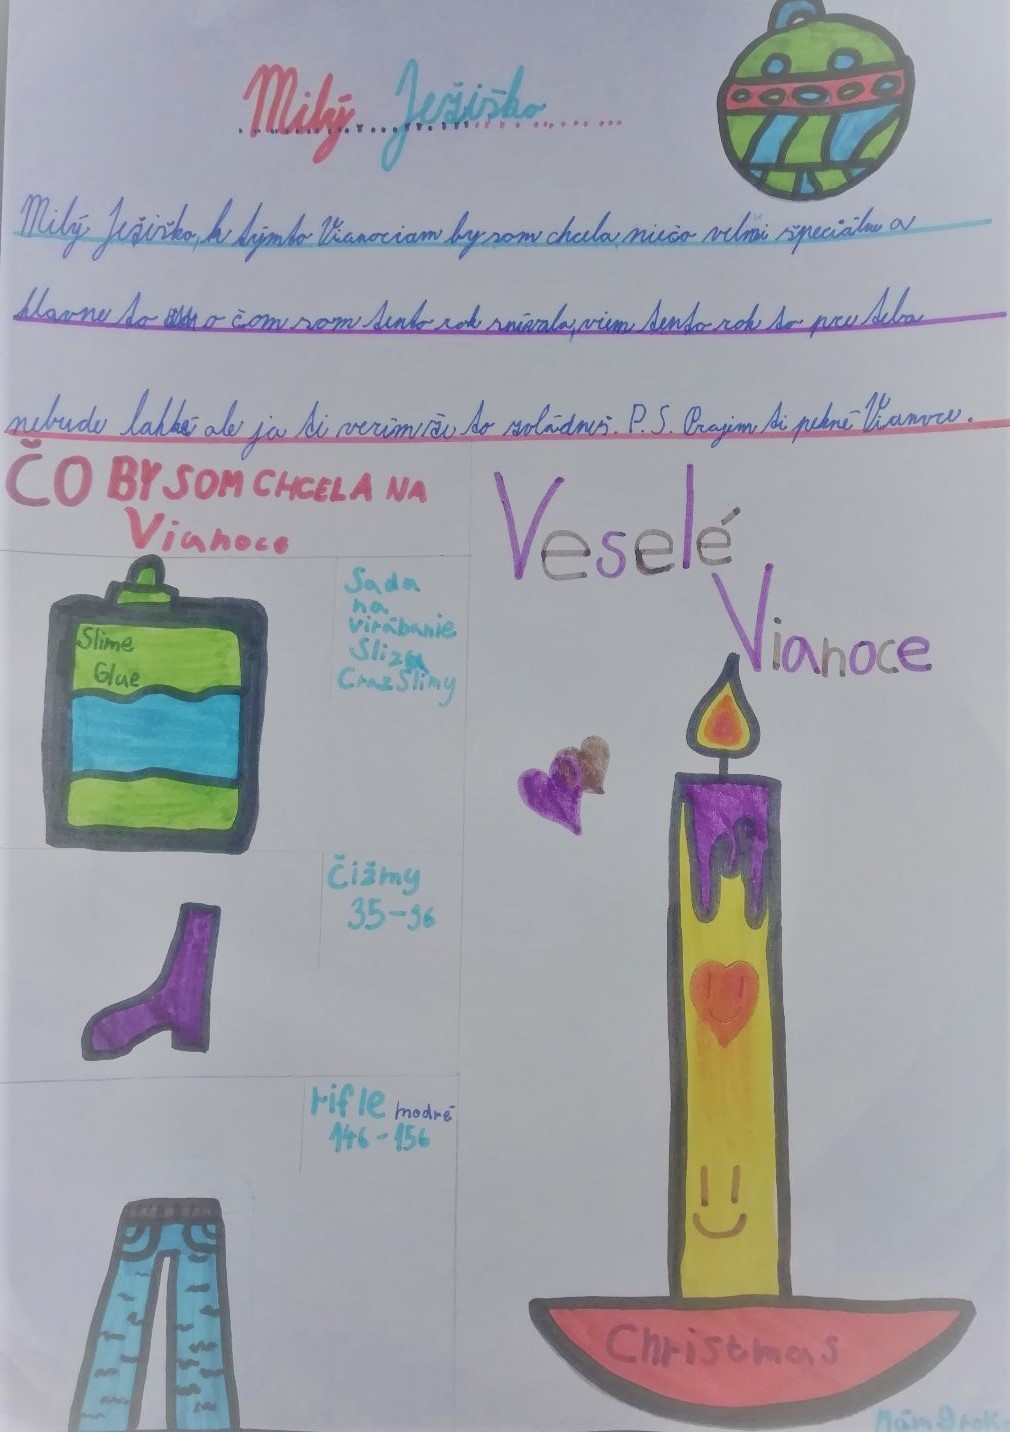 Milý Ježiško
Milý Ježiško, k týmto Vianociam by som chcela niečo velmi špeciálne a
hlavne to o čom som tento rok snívala, viem tento rok to pre teba
nebude lahké ale ja ti verím že to zvládneš. P.S. Prajem ti pekné Vianoce.
ČO BY SOM CHCELA NA
Vianoce
Slime
Glue
Sada
na
virábanie
Slizu
CrazSlimy
Čižmy
35-36
rifle modré
146-156
Veselé
Vianoce
Christmas
Mám 9 roko